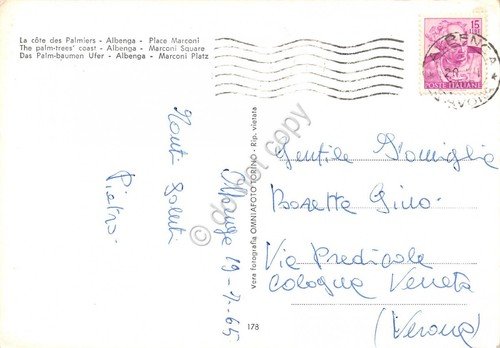 La côte des Palmiers - Albenga - Place Marconi
The palm-trees' coast - Albenga - Marconi Square
Das Palm-baumen Ufer - Albenga - Marconi Platz
15
POSTE ITALIANE
GENOVA
Vera Fotografia OMNIAFOTO TORINO - Rip. vietata
178
do not copy
19-7-65
Saluti
Pietro
Gentile Famiglia
Rossetto Gino
Via Predicale
Cologna Veneta
(Verona)